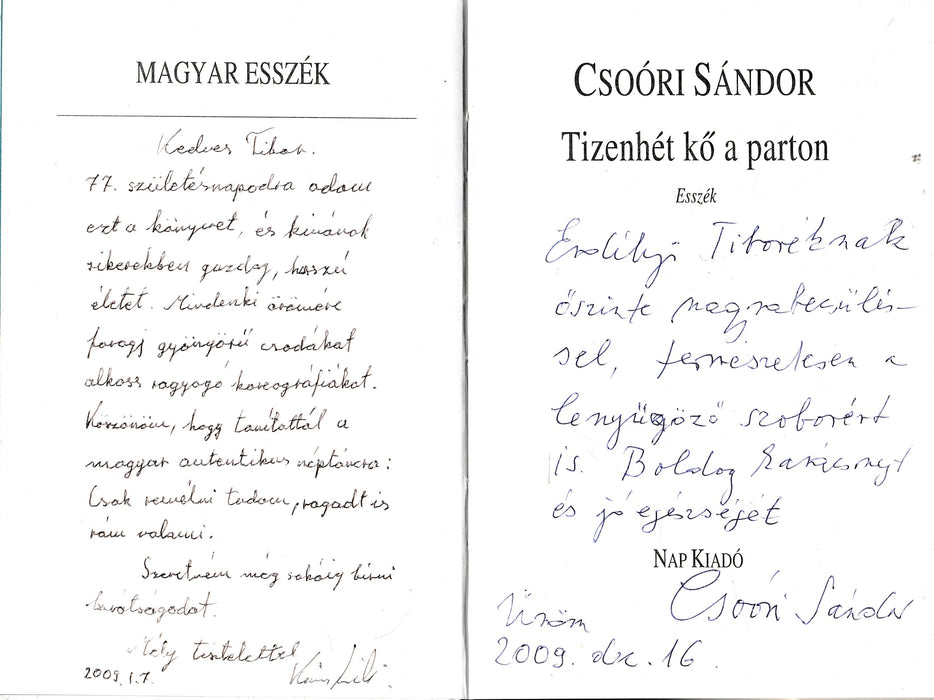 MAGYAR ESSZÉK
Kedves Tibor.
77. születésnapodra adom
ezt a könyvet, és kívánok
sikerekben gazdag, hosszú
életet. Mindenki örömére
faragj gyönyörű csodákat
alkoss ragyogó koreográfiákat.
Köszönöm, hogy tanítottál a
magyar autentikus néptáncra:
Csak remélni tudom, ragadt is
rám valami.
Szeretném még sokáig bírni
barátságodat.
Mély tisztelettel
2009. 1. 7.
CSOÓRI SÁNDOR
Tizenhét kő a parton
Esszék
Erdélyi Tiboréknak
őszinte nagyrabecsülés-
sel, természetesen a
lenyűgöző szoborért
is. Boldog karácsonyt
és jó egészséget
NAP KIADÓ
Csoóri Sándor
Üröm
2009. dec. 16.